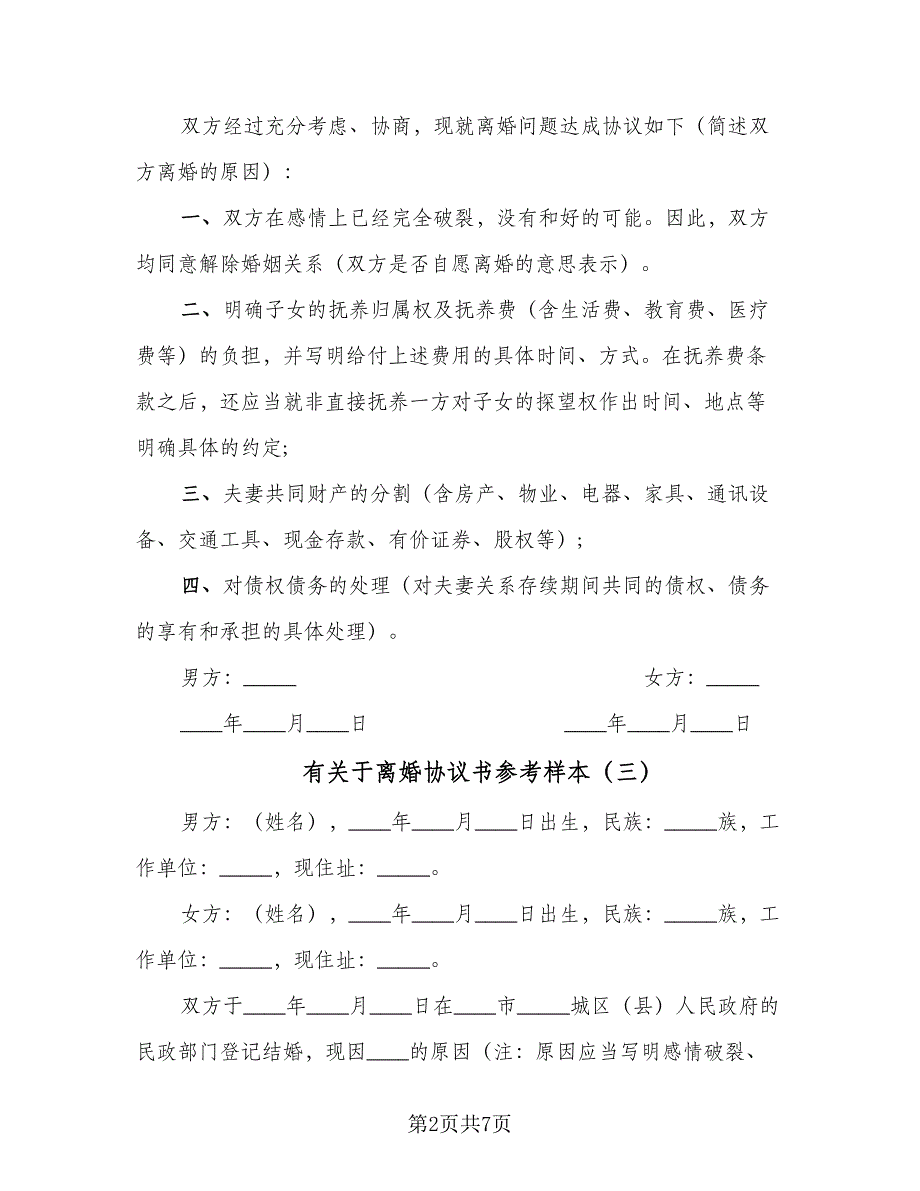 双方经过充分考虑、协商，现就离婚问题达成协议如下（简述双
方离婚的原因）：
一、双方在感情上已经完全破裂，没有和好的可能。因此，双方
均同意解除婚姻关系（双方是否自愿离婚的意思表示）。
二、明确子女的抚养归属权及抚养费（含生活费、教育费、医疗
费等）的负担，并写明给付上述费用的具体时间、方式。在抚养费条
款之后，还应当就非直接抚养一方对子女的探望权作出时间、地点等
明确具体的约定;
三、夫妻共同财产的分割（含房产、物业、电器、家具、通讯设
备、交通工具、现金存款、有价证券、股权等）;
四、对债权债务的处理（对夫妻关系存续期间共同的债权、债务
的享有和承担的具体处理）。
男方：_____ 女方：_____
____年____月____日 ____年____月____日
有关于离婚协议书参考样本（三）
男方：（姓名），____年____月____日出生，民族：_____族，工
作单位：_____，现住址：_____。
女方：（姓名），____年____月____日出生，民族：_____族，工
作单位：_____，现住址：_____。
双方于____年____月____日在____市_____城区（县）人民政府的
民政部门登记结婚，现因____的原因（注：原因应当写明感情破裂、
第2页共7页